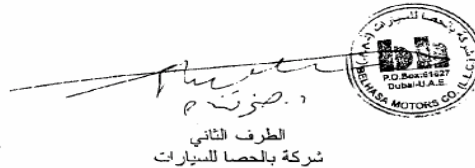 شركة بالحصا للسيارات (ذ.م.م.)
P.O.Box:61627
Dubai-U.A.E.
BELHASA MOTORS CO. (L.L.C.)
الطرف الثاني
شركة بالحصا للسيارات